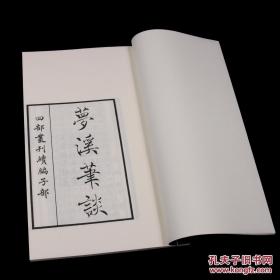 夢溪筆談
四部叢刊續編子部
孔夫子旧书网